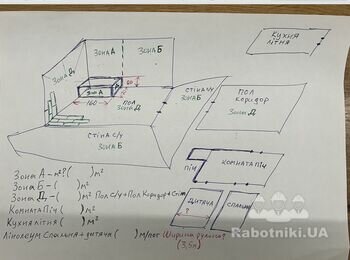 Кухня
літня
Зона Б
Зона Б
Зона Д
Зона А
60
160
Пол
Зона Д
Стіна с/у
Зона Б
Пол
Коридор
Зона Д
Стіна с/у
Зона Б
Піч
Комната Піч
Дитяча
?
Спальня
Зона А - м²? ( ) м²
Зона Б - ( ) м²
Зона Д - ( ) м² Пол с/у + Пол Коридор +
Комната Піч ( ) м²
Кухня літня ( ) м²
Лінолеум Спальня + дитяча ( ) м/пог Ширина рулона?
(3,5м)
Rabotniki.UA